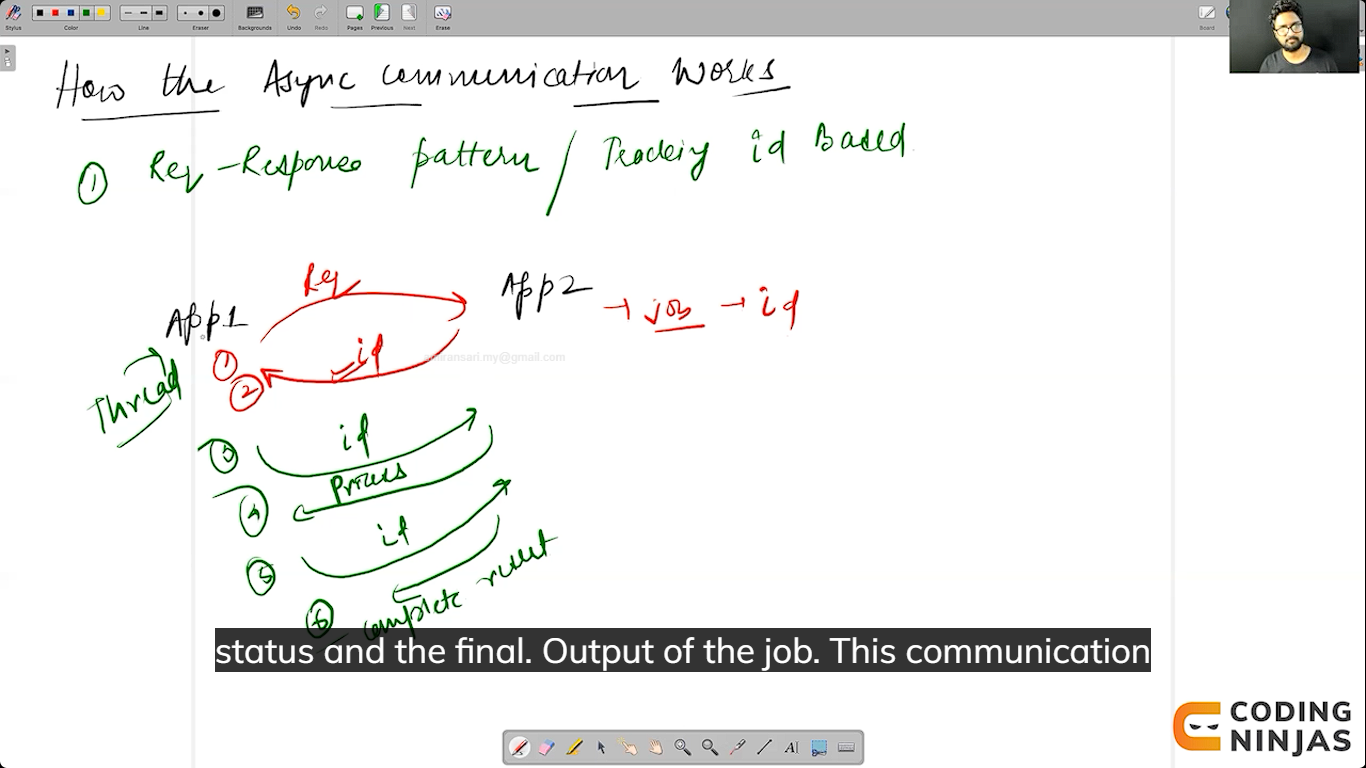 Stylus Color Line Eraser Backgrounds Undo Redo Pages Previous Next Erase Board
How the Async communication Works
① Req-Response pattern / Tracking id Based
Req
App1
App2 → job → id
id
ansari.my@gmail.com
①
②
Thread
③ id
Process
④
id
⑤
⑥ complete result
status and the final. Output of the job. This communication
CODING
NINJAS